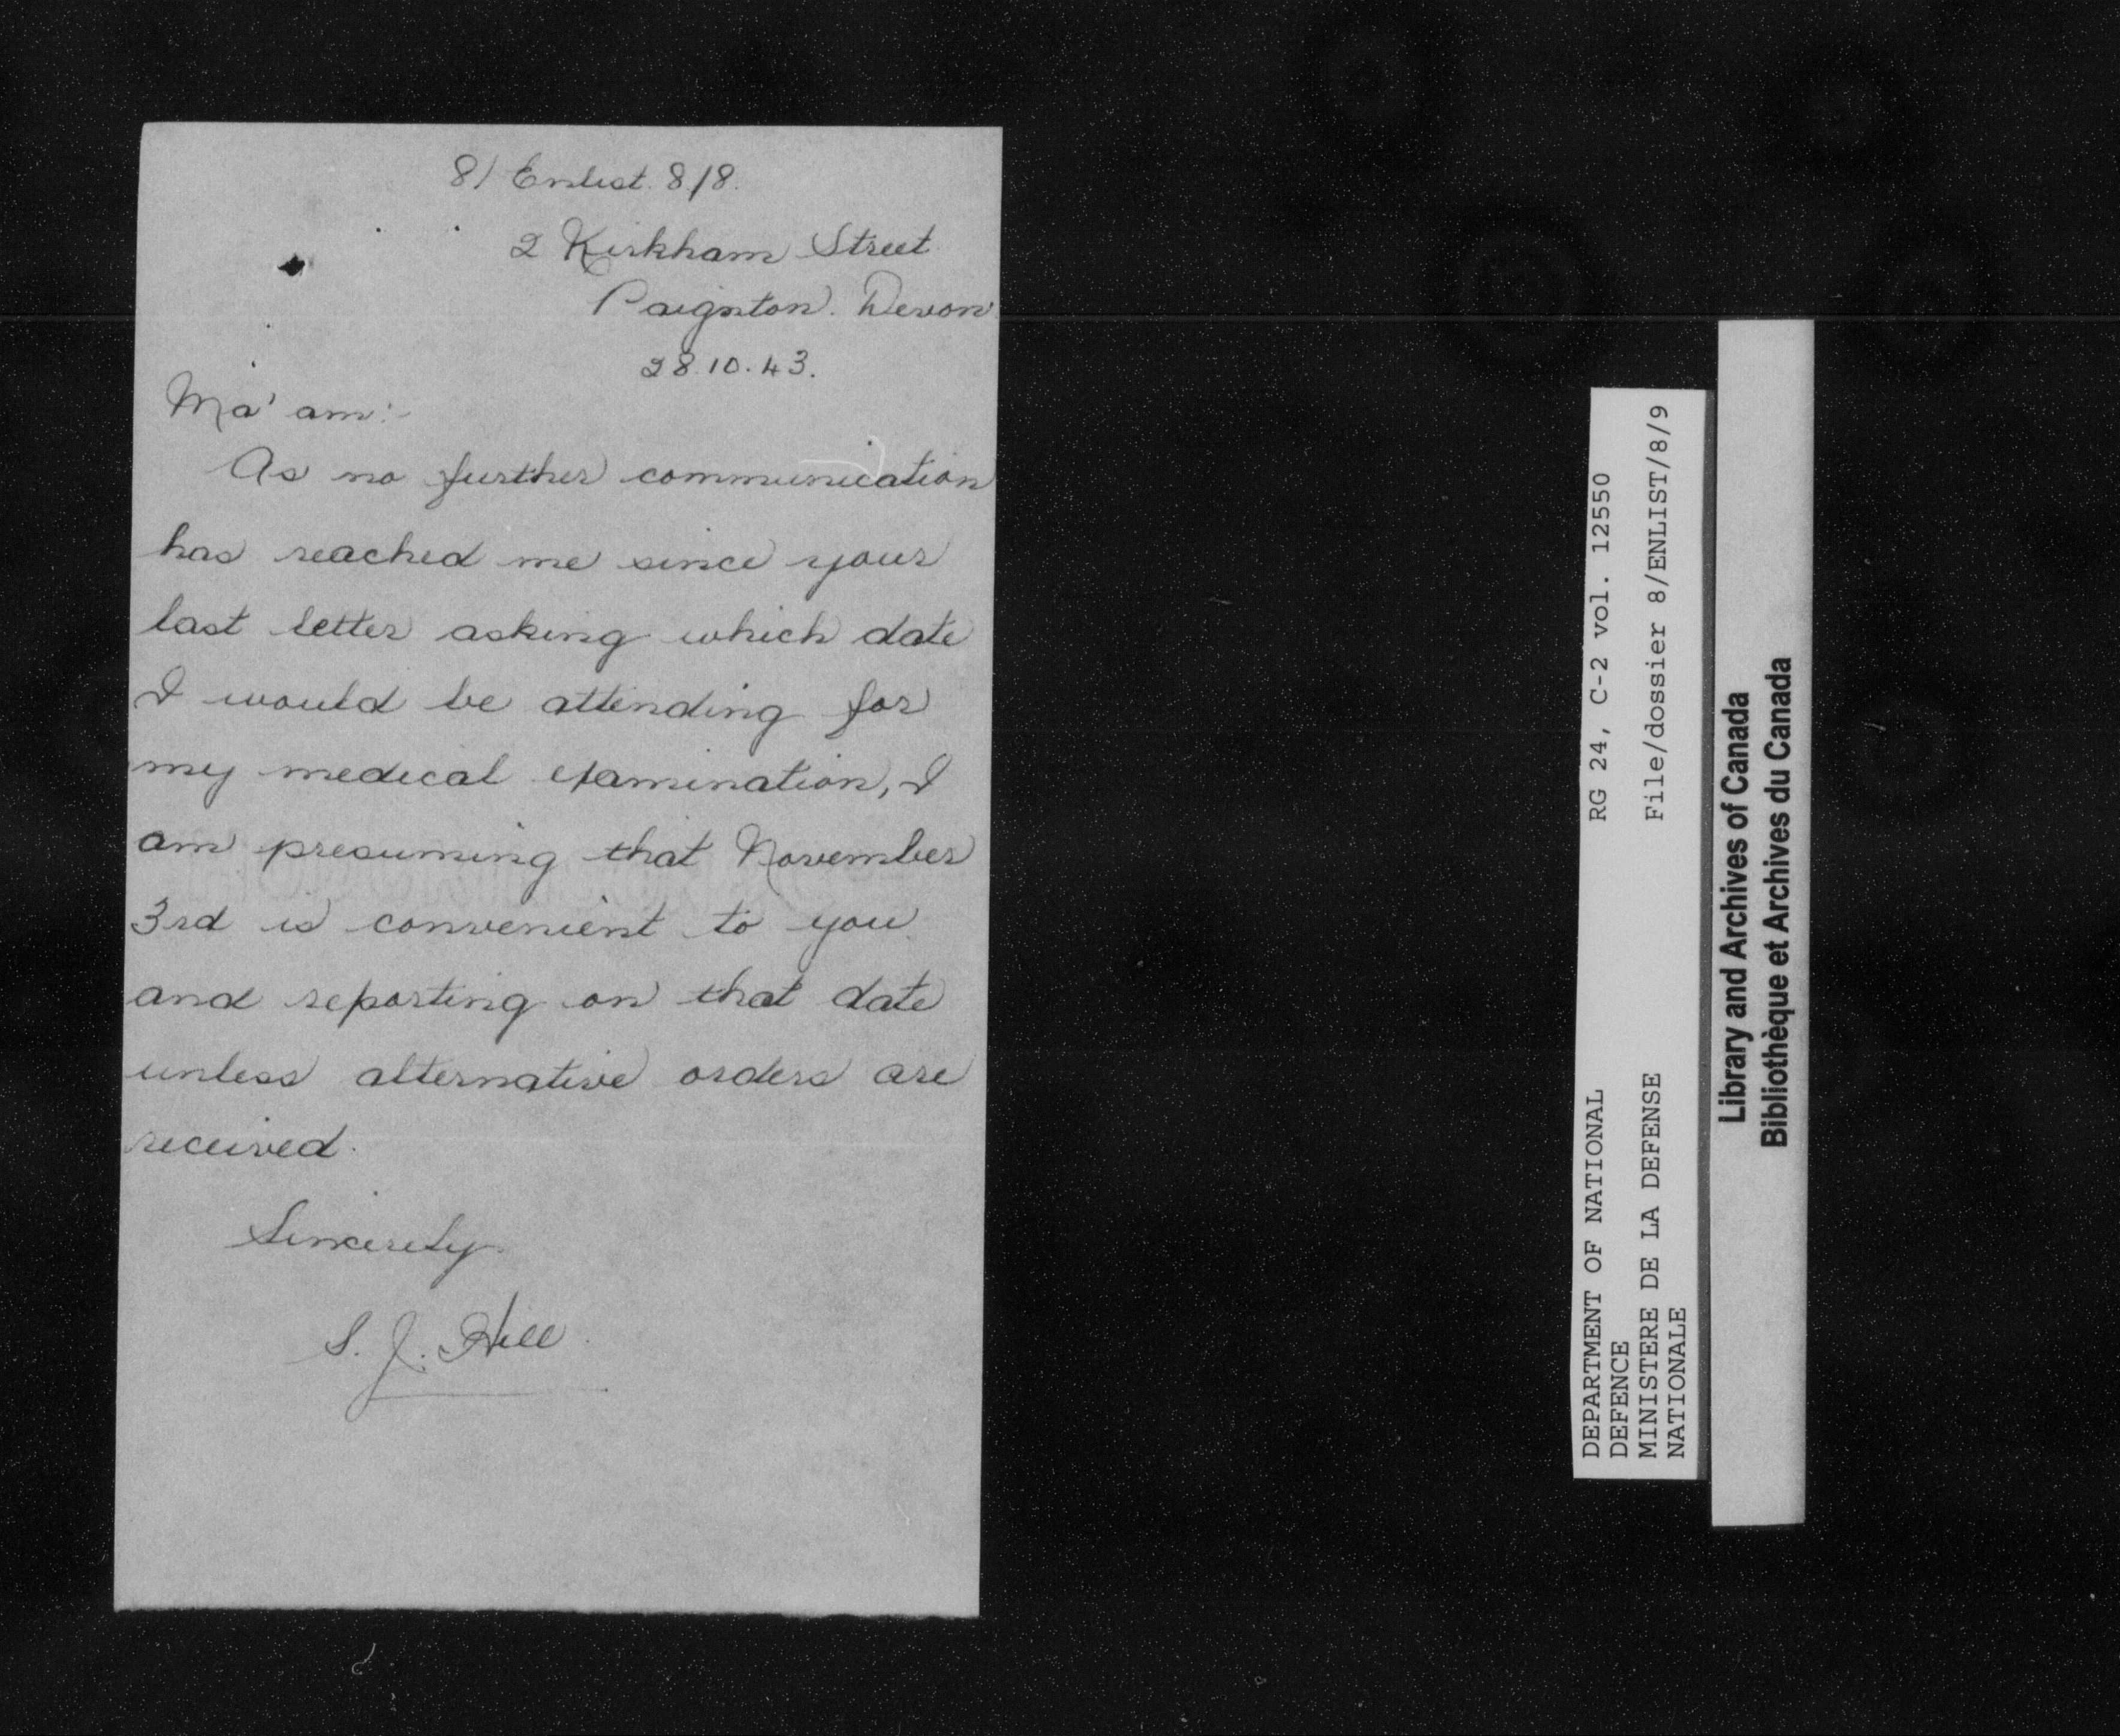 8/ Enlist. 8/8.
2 Kirkham Street
Paignton. Devon.
28.10.43.
Ma'am:-
As no further communication
has reached me since your
last letter asking which date
I would be attending for
my medical examination, I
am presuming that November
3rd is convenient to you
and reporting on that date
unless alternative orders are
received.
Sincerely
S. J. Hill.
DEPARTMENT OF NATIONAL RG 24, C-2 vol. 12550
DEFENCE
MINISTERE DE LA DEFENSE File/dossier 8/ENLIST/8/9
NATIONALE
Library and Archives of Canada
Bibliothèque et Archives du Canada